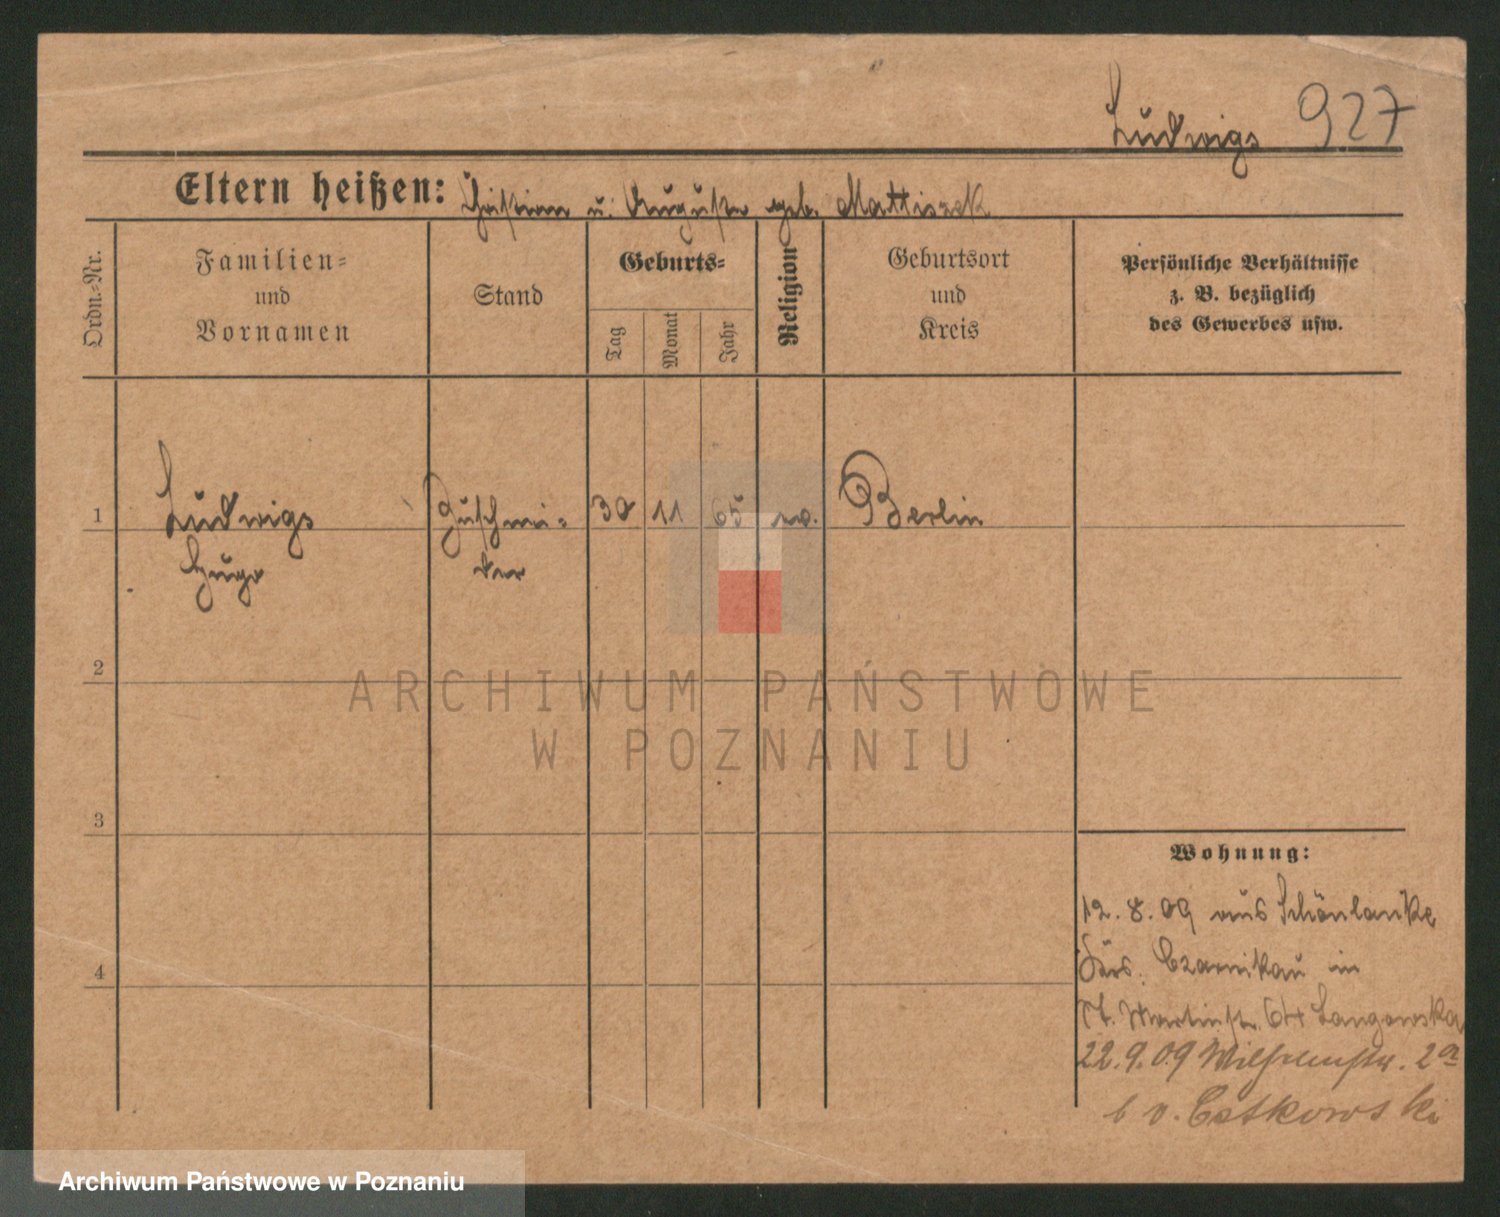 Ludwigs 927
Eltern heißen: Christian u. Auguste geb. Mattiszek
Ordn.-Nr.
Familien-
und
Vornamen
Stand
Geburts-
Tag
Monat
Jahr
Religion
Geburtsort
und
Kreis
Persönliche Verhältnisse
z. B. bezüglich
des Gewerbes usw.
1
Ludwigs
Hugo
Zuschnei-
der
30 11 65 ev. Berlin
2
ARCHIWUM PAŃSTWOWE
W POZNANIU
3
4
Wohnung:
12.8.09 aus Schönlanke
Czarnikau in
St. Martinstr. 64 Langowska
22.9.09 Wilhelmstr. 2a
b v.
Archiwum Państwowe w Poznaniu